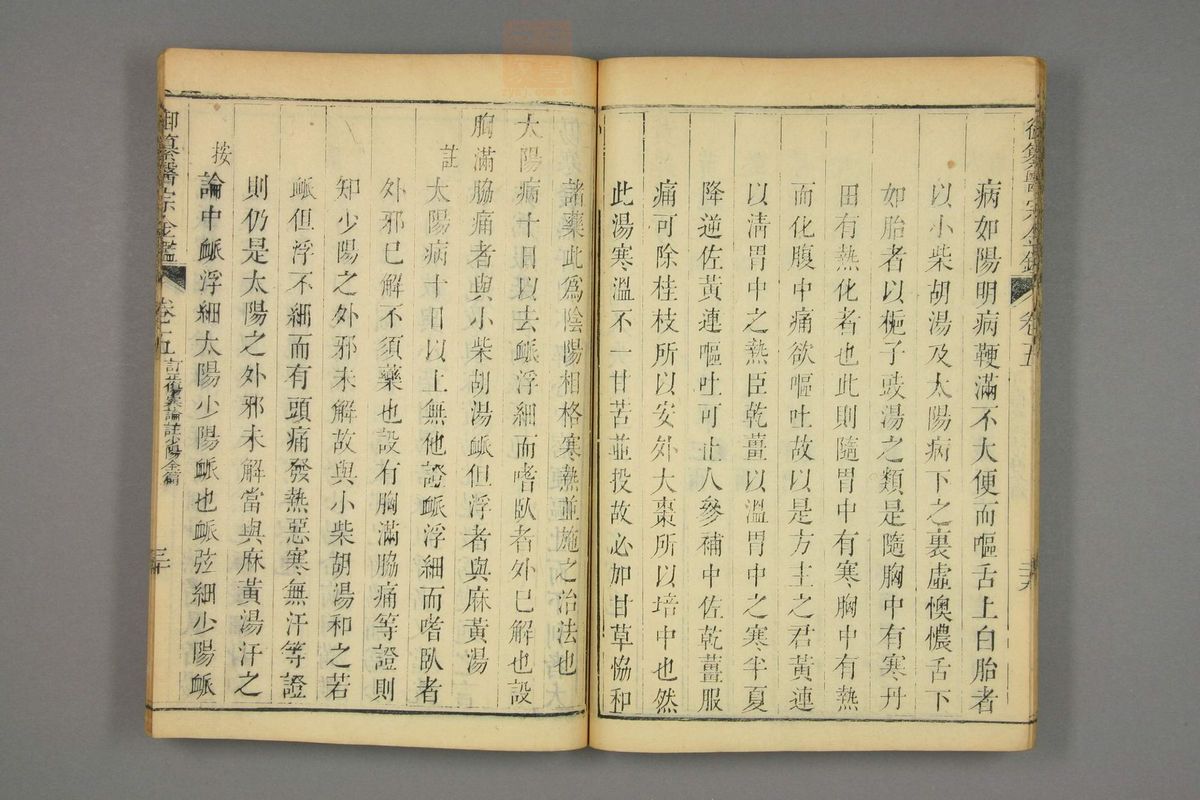 病如陽明病鞕滿不大便而嘔舌上白胎者
以小柴胡湯及太陽病下之裏虛懊憹舌下
如胎者以梔子豉湯之類是隨胸中有寒丹
田有熱化者也此則隨胃中有寒胸中有熱
而化腹中痛欲嘔吐故以是方主之君黃連
以清胃中之熱臣乾薑以溫胃中之寒半夏
降逆佐黃連嘔吐可止人參補中佐乾薑腹
痛可除桂枝所以安外大棗所以培中也然
此湯寒溫不一甘苦並投故必加甘草恊和
諸藥此爲陰陽相格寒熱並施之治法也
太陽病十日以去脈浮細而嗜臥者外已解也設
胸滿脇痛者與小柴胡湯脈但浮者與麻黃湯
註
太陽病十日以上無他證脈浮細而嗜臥者
外邪已解不須藥也設有胸滿脇痛等證則
知少陽之外邪未解故與小柴胡湯和之若
脈但浮不細而有頭痛發熱惡寒無汗等證
則仍是太陽之外邪未解當與麻黃湯汗之
按
論中脈浮細太陽少陽脈也脈弦細少陽脈
御纂醫宗金鑑
卷五
訂正傷寒論註少陽全篇
三十